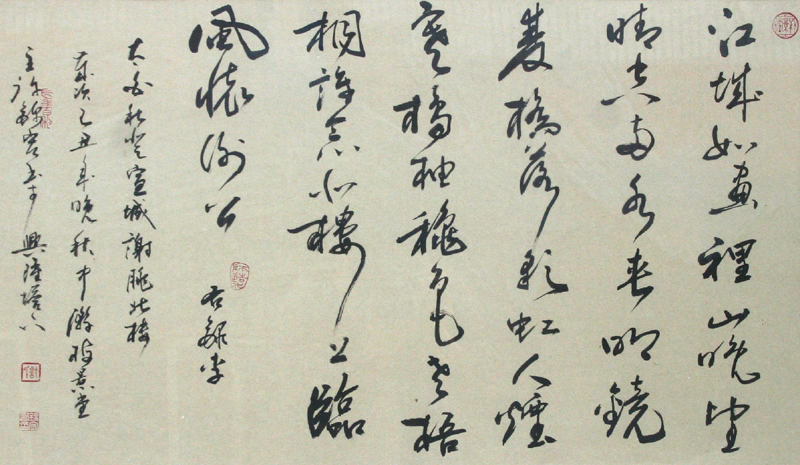 江城如畫裡山晚望
晴空雨水夾明鏡
雙橋落彩虹人煙
寒橘柚穐色老梧
桐誰念北樓上臨
風懷謝公
右錄李
太白秋登宣城謝朓北樓
歲次己丑年晚秋中澣景堂
主於興隆塔下